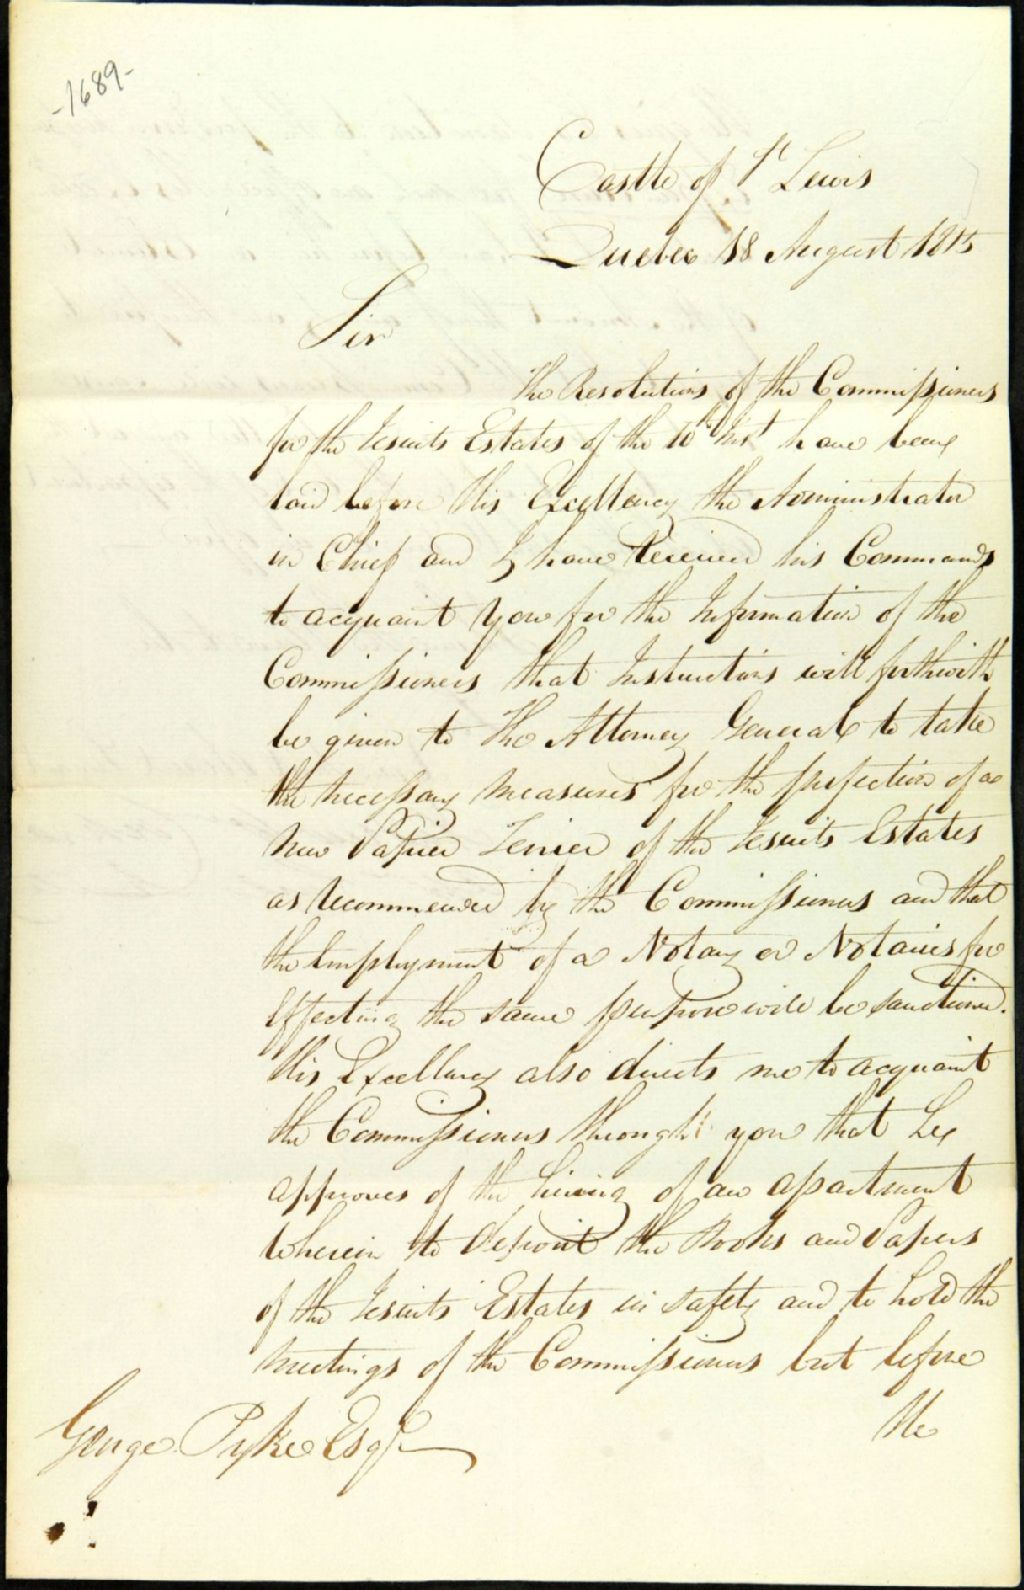 -1689-
Castle of St Lewis
Quebec 18 August 1815
Sir
The Resolutions of the Commissioners
for the Jesuits Estates of the 10th Inst have been
laid before His Excellency the Administrator
in Chief and I have Received his Commands
to acquaint you for the Information of the
Commissioners that Instructions will forthwith
be given to the Attorney General to take
the necessary measures for the perfection of a
new Papier Terrier of the Jesuits Estates
as recommended by the Commissioners and that
the Employment of a Notary or Notaries for
Effecting the same purpose will be sanctioned.
His Excellency also directs me to acquaint
the Commissioners through you that he
approves of the hiring of an apartment
wherein to deposit the Books and Papers
of the Jesuits Estates in safety and to hold the
meetings of the Commissioners but before
He
George Pyke Esqr